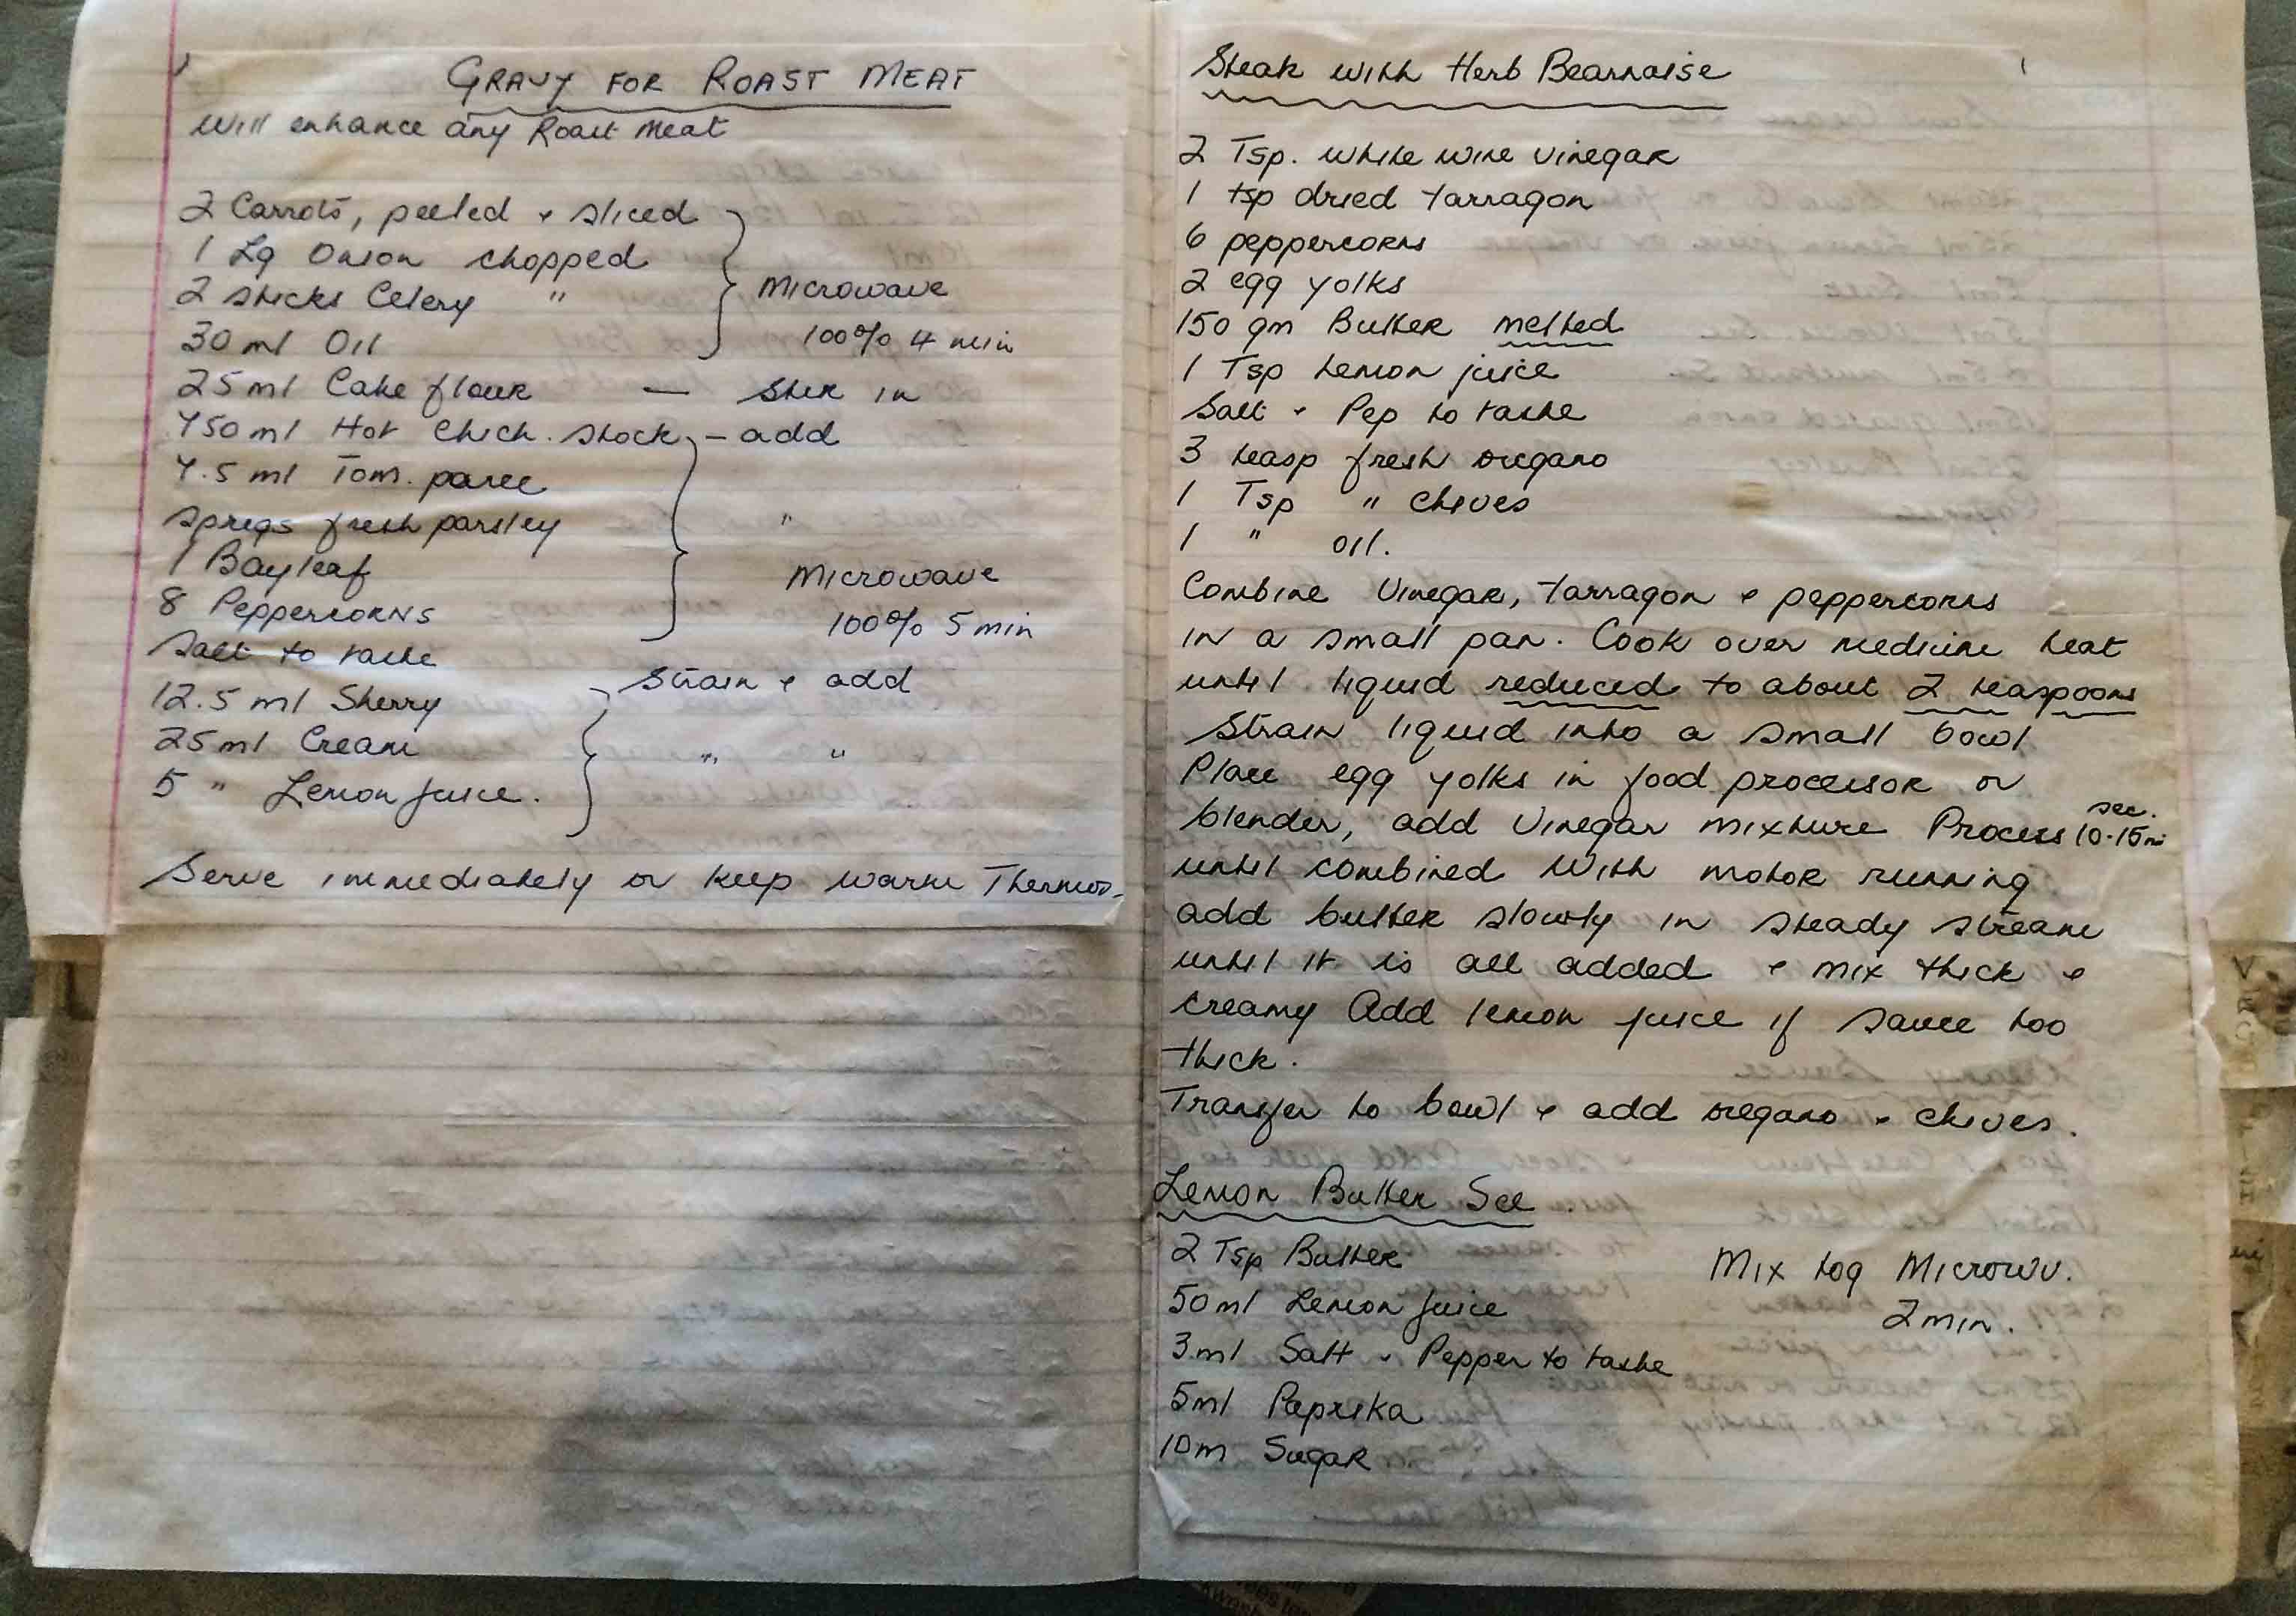 GRAVY FOR ROAST MEAT
Will enhance any Roast Meat
2 Carrots, peeled + sliced
1 Lg Onion chopped
2 sticks Celery "
30 ml Oil
Microwave
100% 4 min
25 ml Cake flour — Stir in
750 ml Hot Chick. Stock, - add
7.5 ml Tom. puree
sprigs fresh parsley "
1 Bayleaf
8 Peppercorns
Microwave
100% 5 min
Salt to taste
12.5 ml Sherry
Strain + add
25 ml Cream " "
5 " Lemon Juice.
Serve immediately or keep warm Thermos.
Steak with Herb Bearnaise
2 Tsp. white wine vinegar
1 tsp dried tarragon
6 peppercorns
2 egg yolks
150 gm Butter melted
1 Tsp Lemon juice
Salt + Pep to taste
3 teasp fresh oregano
1 Tsp " Chives
1 " oil.
Combine Vinegar, tarragon + peppercorns
in a small pan. Cook over medium heat
until liquid reduced to about 2 teaspoons
Strain liquid into a small bowl
Place egg yolks in food processor or
blender, add Vinegar mixture Process 10-15 sec.
until combined With motor running
add butter slowly in steady stream
until it is all added + mix thick +
creamy Add lemon juice if sauce too
thick.
Transfer to bowl + add oregano + chives.
Lemon Butter Sce
2 Tsp Butter
50 ml Lemon Juice
3 ml Salt + Pepper to taste
5 ml Paprika
10 m Sugar
Mix tog Microwv.
2 min.